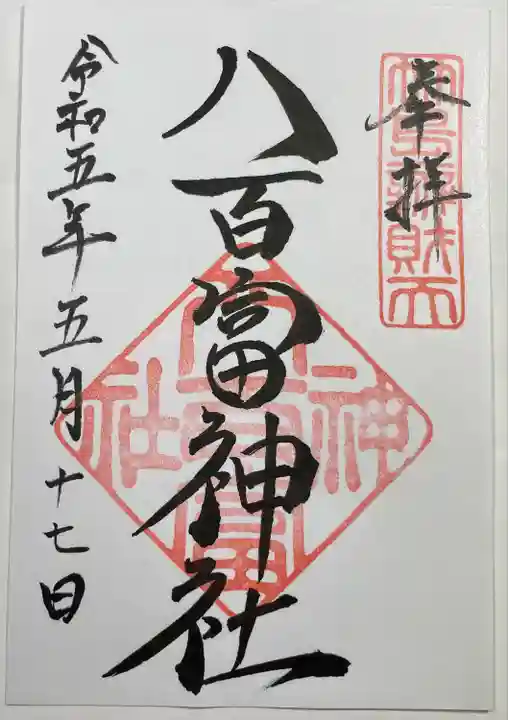 奉拝
八百富神社
令和五年五月十七日
八百富神社